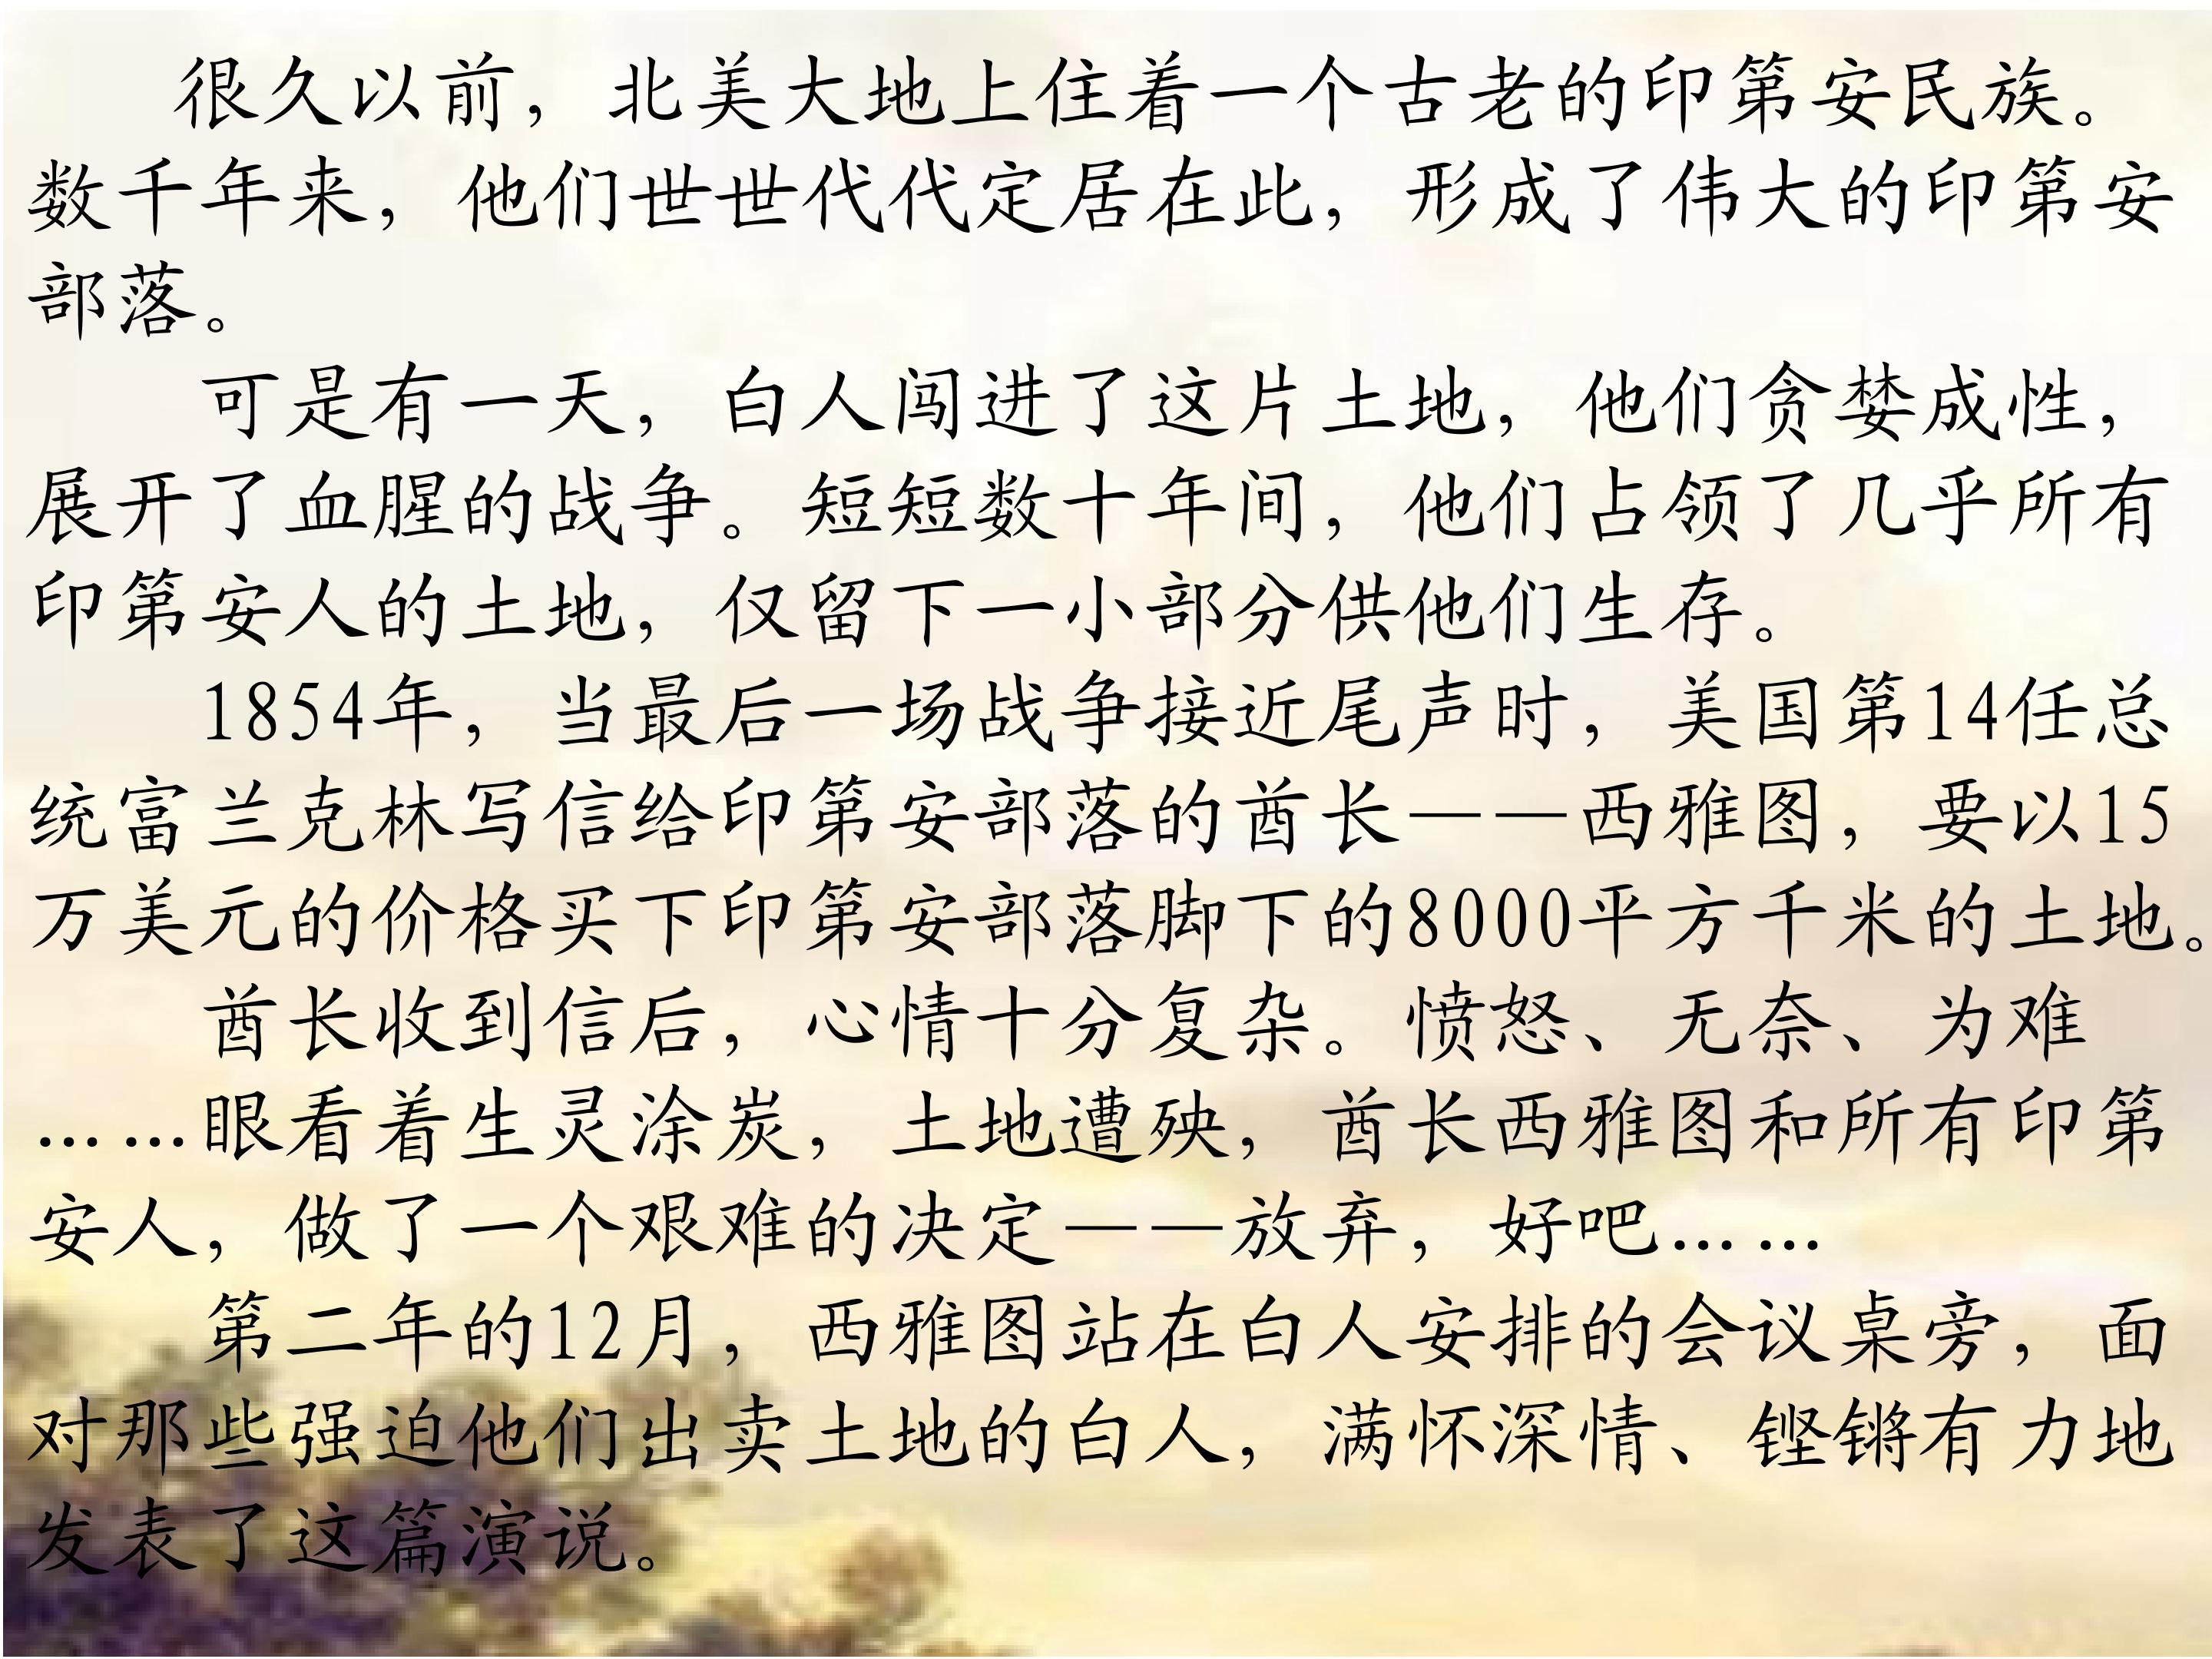 很久以前，北美大地上住着一个古老的印第安民族。
数千年来，他们世世代代定居在此，形成了伟大的印第安
部落。
可是有一天，白人闯进了这片土地，他们贪婪成性，
展开了血腥的战争。短短数十年间，他们占领了几乎所有
印第安人的土地，仅留下一小部分供他们生存。
1854年，当最后一场战争接近尾声时，美国第14任总
统富兰克林写信给印第安部落的酋长——西雅图，要以15
万美元的价格买下印第安部落脚下的8000平方千米的土地。
酋长收到信后，心情十分复杂。愤怒、无奈、为难
……眼看着生灵涂炭，土地遭殃，酋长西雅图和所有印第
安人，做了一个艰难的决定——放弃，好吧……
第二年的12月，西雅图站在白人安排的会议桌旁，面
对那些强迫他们出卖土地的白人，满怀深情、铿锵有力地
发表了这篇演说。